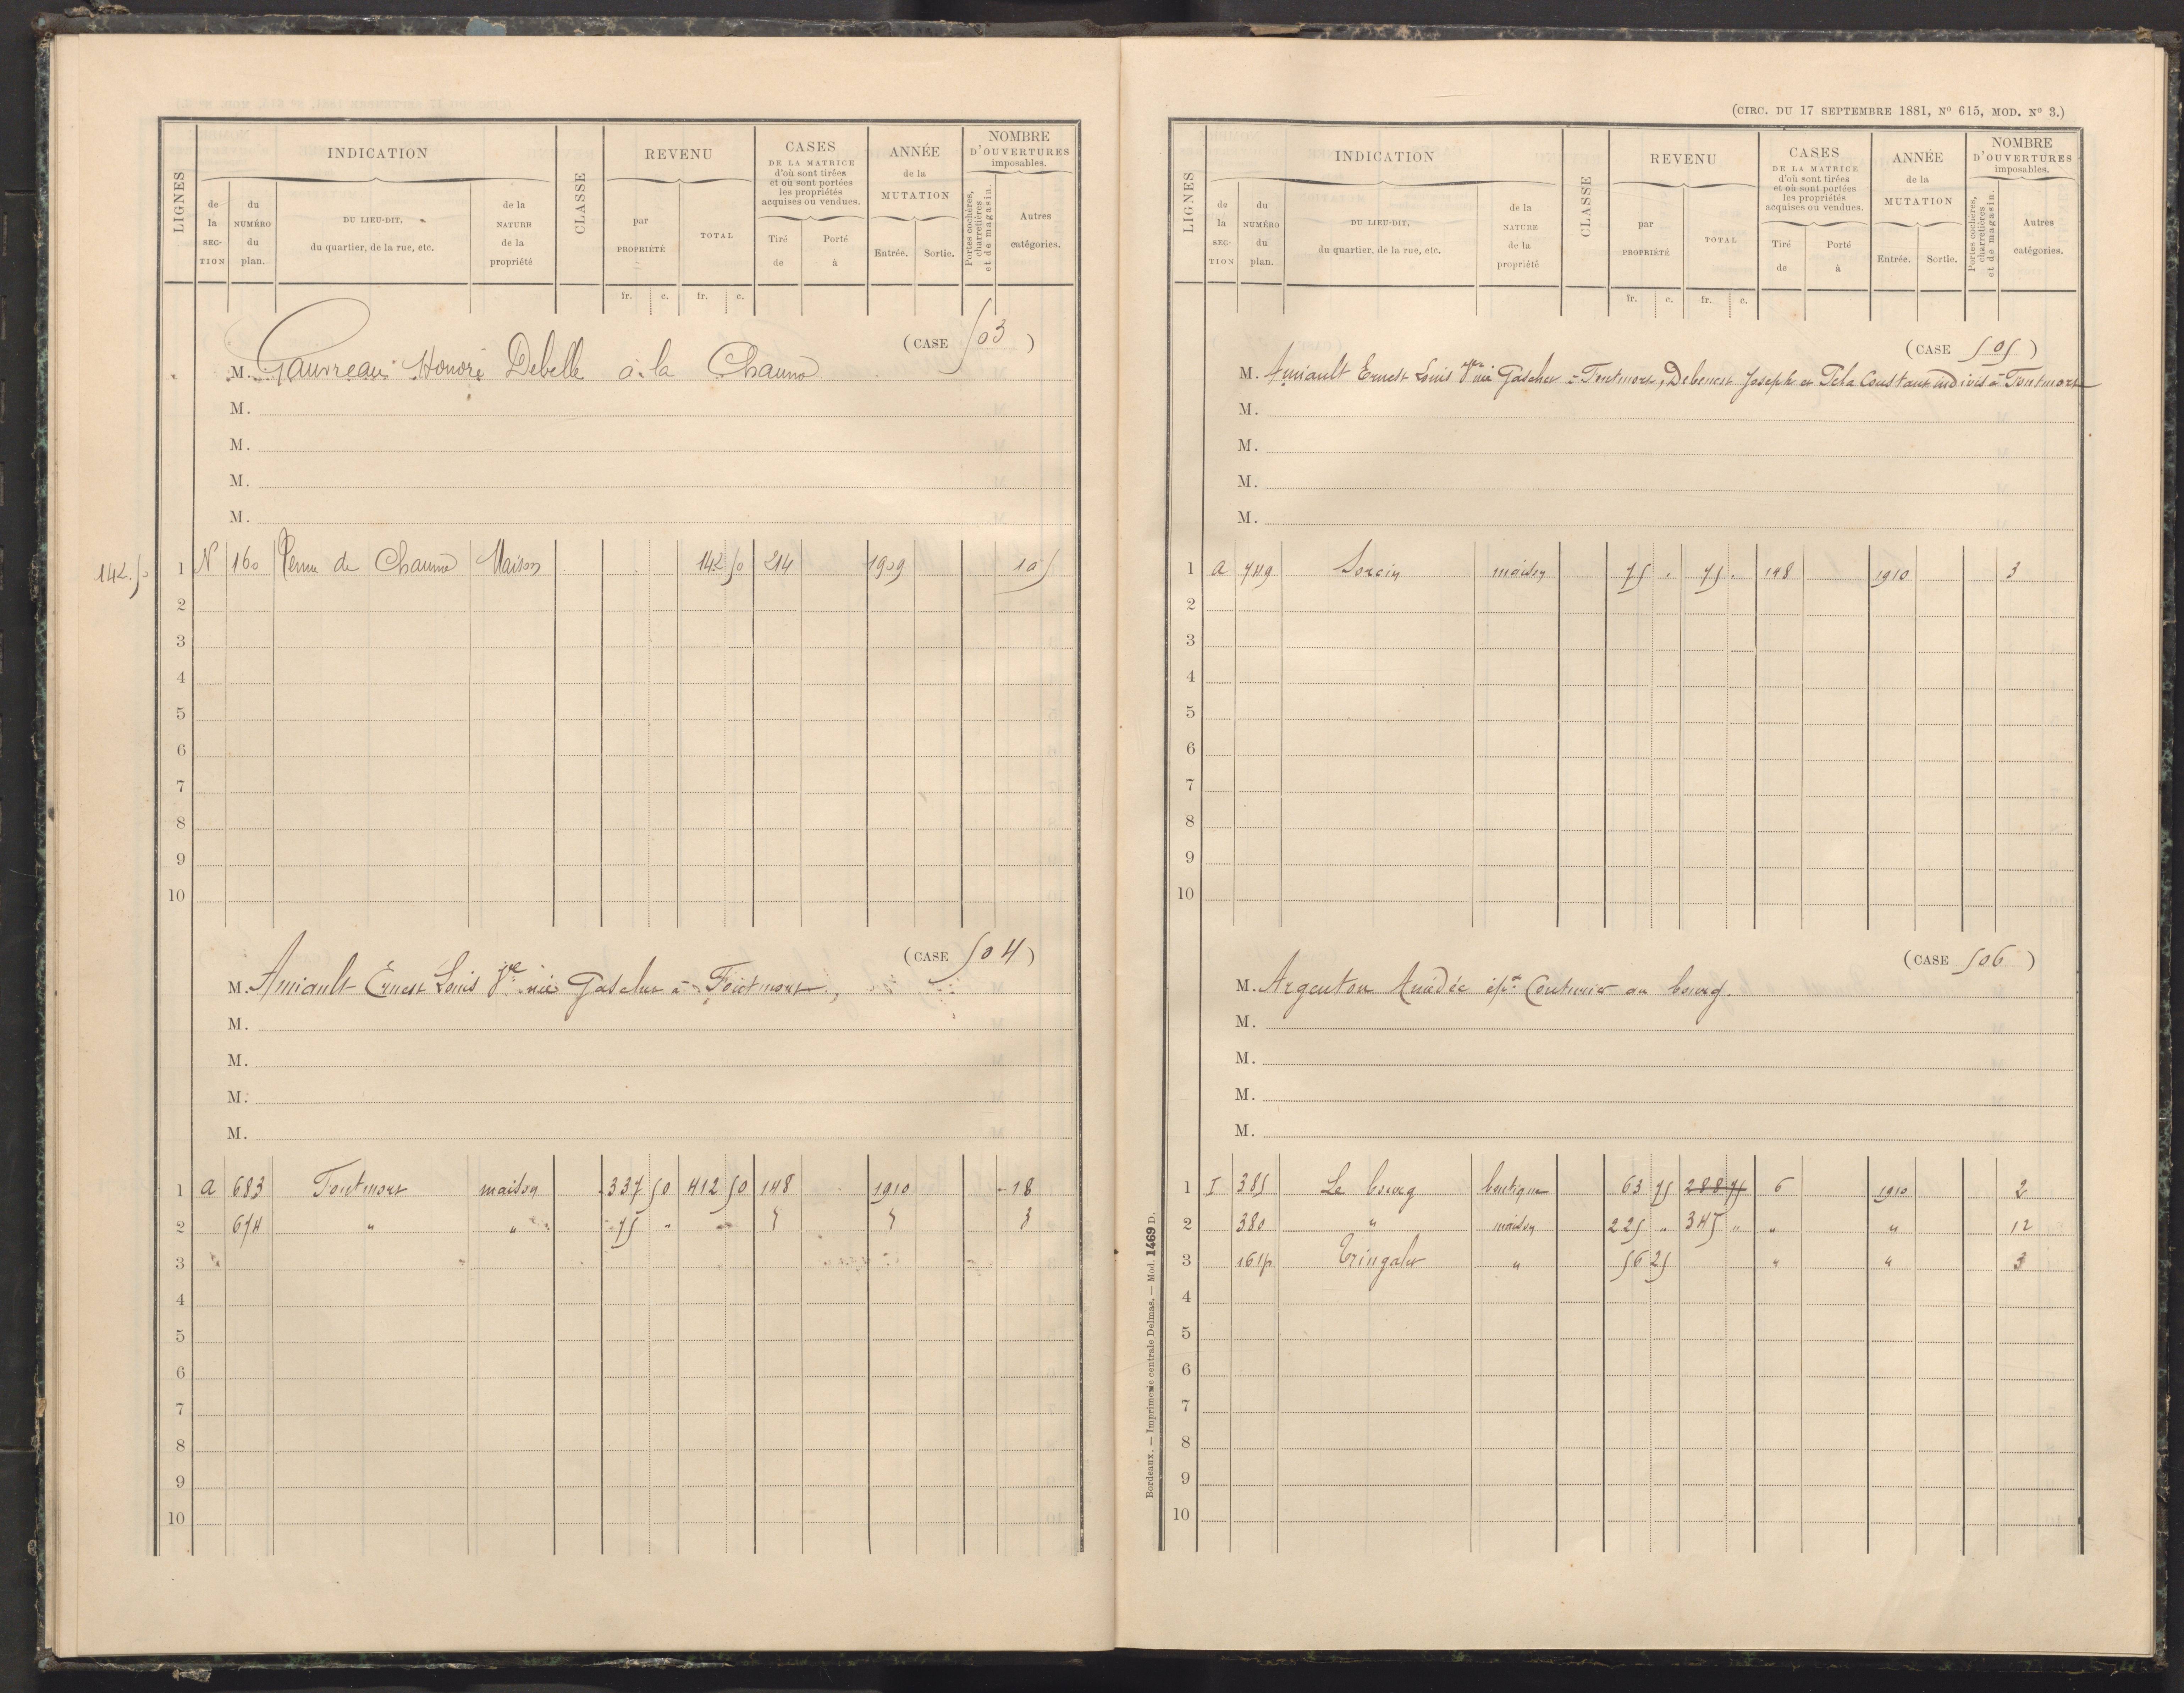 LIGNES
INDICATION
de la SECTION
du NUMÉRO du plan.
DU LIEU-DIT, du quartier, de la rue, etc.
de la NATURE de la propriété
CLASSE
REVENU
par PROPRIÉTÉ
TOTAL
fr. c. fr. c.
CASES DE LA MATRICE d'où sont tirées et où sont portées les propriétés acquises ou vendues.
Tiré de
Porté à
ANNÉE de la MUTATION
Entrée. Sortie.
NOMBRE D'OUVERTURES imposables.
Portes cochères, charretières et de magasin.
Autres catégories.
(CASE 503)
M. Gauvreau Honoré Debelle à la Chaume
M.
M.
M.
M.
142.50
1 N 160 de Chaume Maison 142 50 214 1909 10
2
3
4
5
6
7
8
9
10
(CASE 504)
M. Amiault Ernest Louis Vve née Gaschet à Fontmort,
M.
M.
M.
M.
1 A 683 Fontmort maison 337 50 412 50 148 1910 18
2 674 " " 75 " " 3
3
4
5
6
7
8
9
10
(CIRC. DU 17 SEPTEMBRE 1881, No 615, MOD. No 3.)
LIGNES
INDICATION
de la SECTION
du NUMÉRO du plan.
DU LIEU-DIT, du quartier, de la rue, etc.
de la NATURE de la propriété
CLASSE
REVENU
par PROPRIÉTÉ
TOTAL
fr. c. fr. c.
CASES DE LA MATRICE d'où sont tirées et où sont portées les propriétés acquises ou vendues.
Tiré de
Porté à
ANNÉE de la MUTATION
Entrée. Sortie.
NOMBRE D'OUVERTURES imposables.
Portes cochères, charretières et de magasin.
Autres catégories.
(CASE 505)
M. Amiault Ernest Louis Vve née Gaschet à Fontmort, Debenest Joseph et Constant indivis à Fontmort
M.
M.
M.
M.
1 A 749 maison 75 " 75 " 148 1910 3
2
3
4
5
6
7
8
9
10
(CASE 506)
M. Argenton Amédée épx Couturier au bourg.
M.
M.
M.
M.
1 I 385 Le bourg boutique 63 75 288 75 6 1910 2
2 380 " maison 225 " 345 " " " 12
3 161p Tringalet " 56 25 " " 3
4
5
6
7
8
9
10
Bordeaux. — Imprimerie centrale Delmas. — Mod. 1469 D.